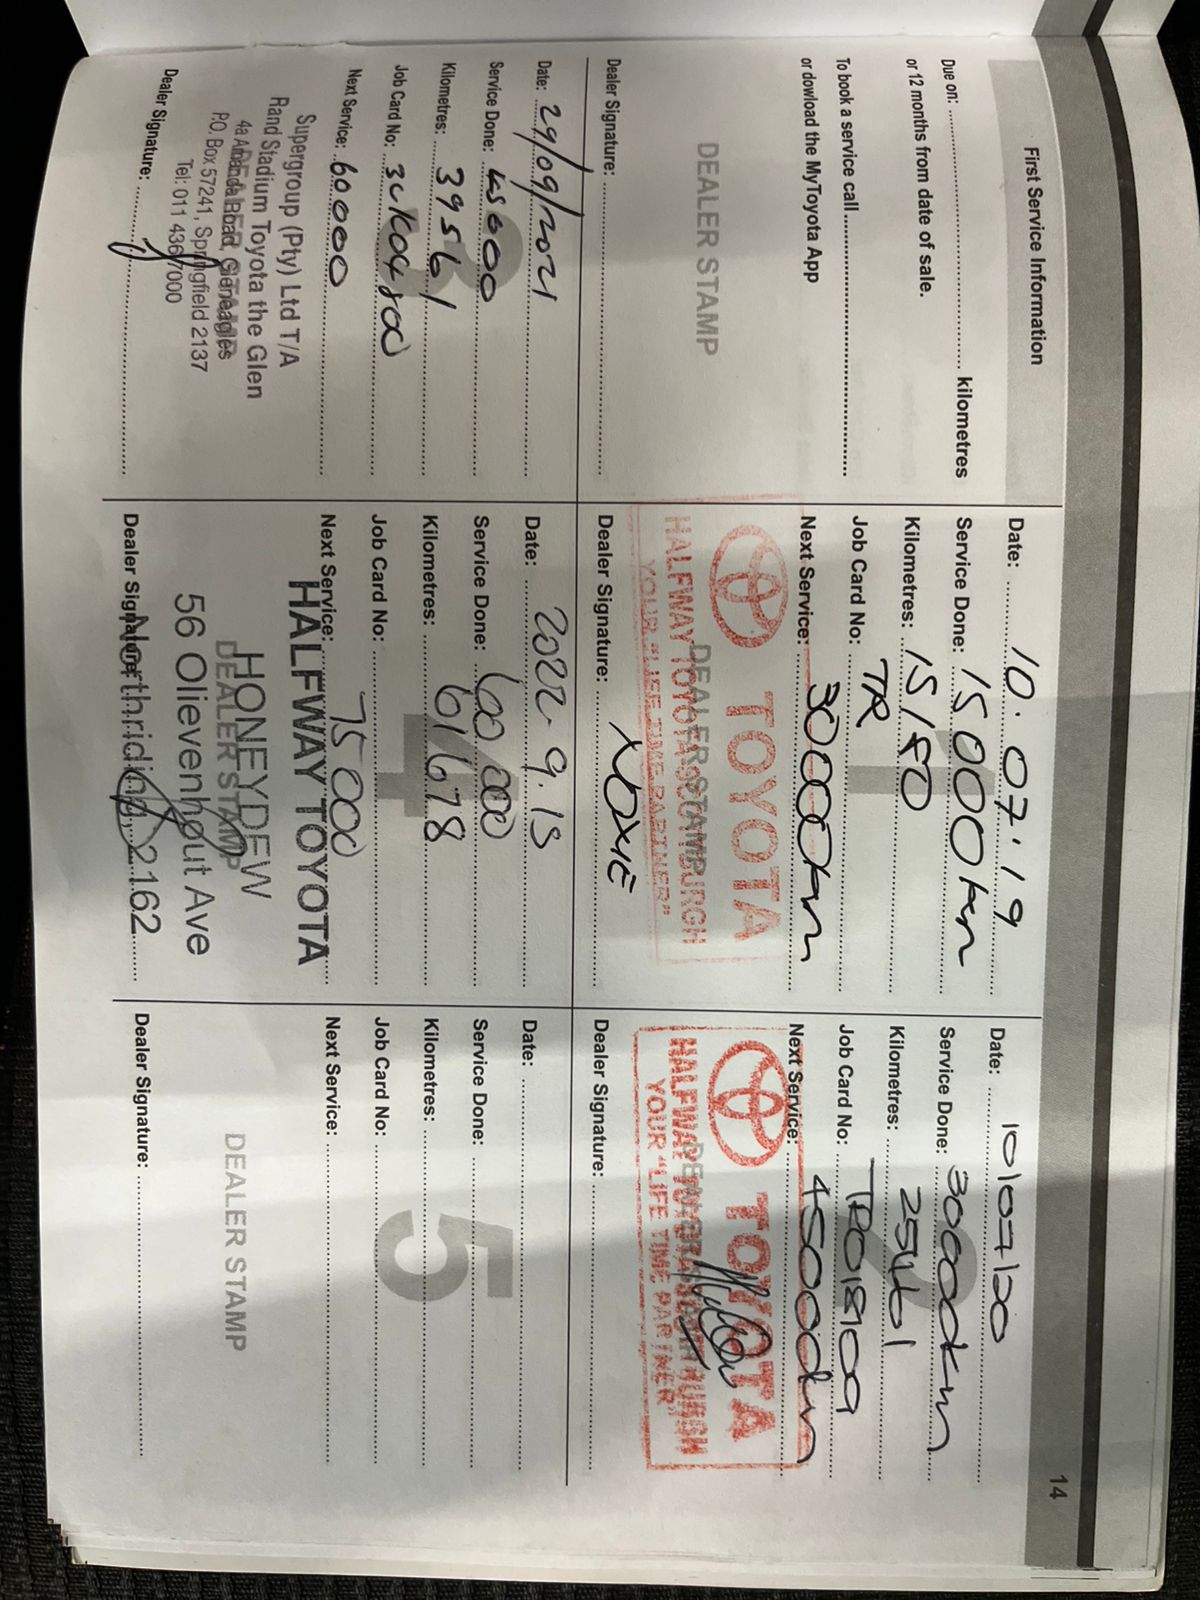 14
First Service Information
Due on: kilometres
or 12 months from date of sale.
To book a service call
or dowload the MyToyota App
DEALER STAMP
Dealer Signature:
Date: 10.07.19
Service Done: 15000km
Kilometres: 15180
Job Card No: TR
Next Service: 30000km
TOYOTA
DEALER STAMP
HALFWAY TOYOTA SCOTTBURGH
YOUR "LIFE TIME PARTNER"
Dealer Signature:
Date: 10/07/20
Service Done: 30000km
Kilometres: 25461
Job Card No: TR018909
Next Service: 45000km
TOYOTA
DEALER STAMP
HALFWAY TOYOTA SCOTTBURGH
YOUR "LIFE TIME PARTNER"
Dealer Signature:
3
Date: 29/09/2021
Service Done: 45000
Kilometres: 39561
Job Card No:
Next Service: 60000
Supergroup (Pty) Ltd T/A
Rand Stadium Toyota the Glen
4a Amanda Road, Gleneagles
P.O. Box 57241, Springfield 2137
Tel: 011 436 7000
Dealer Signature:
4
Date: 2022.9.13
Service Done: 60 000
Kilometres: 61678
Job Card No:
Next Service: 75 000
HALFWAY TOYOTA
HONEYDEW
DEALER STAMP
56 Olievenhout Ave
Northriding, 2162
Dealer Signature:
5
Date:
Service Done:
Kilometres:
Job Card No:
Next Service:
DEALER STAMP
Dealer Signature: